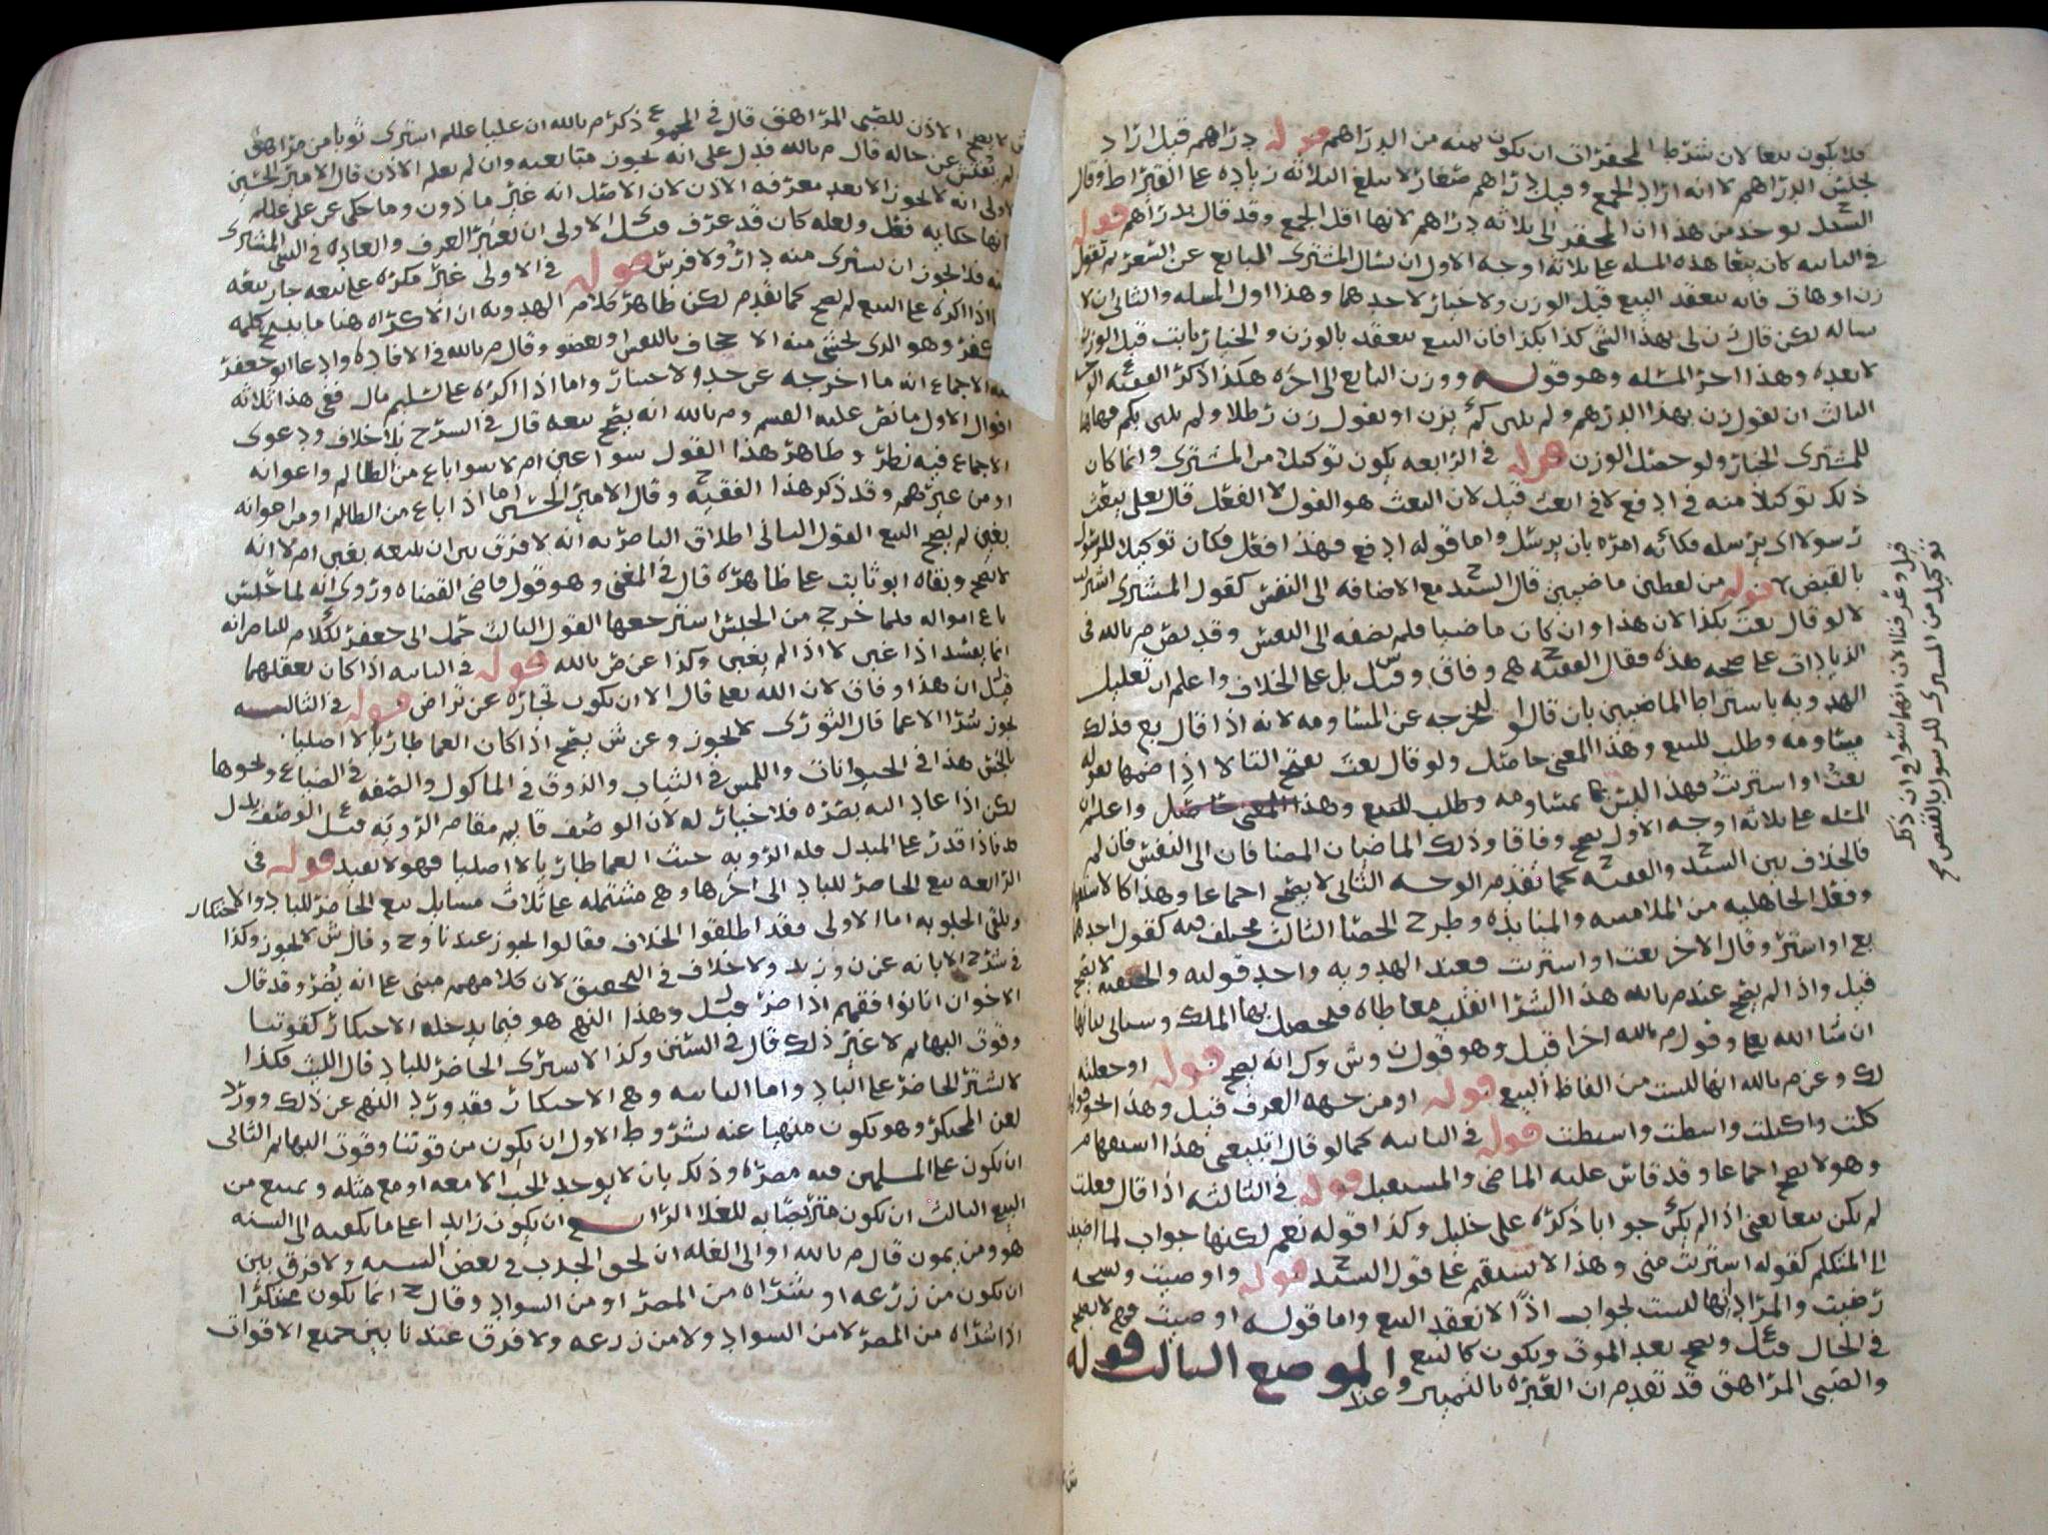 فلا يكون بيعا لان شرط المحقرات ان يكون ثمنه من الدراهم قوله دراهم قيل اراد
جنس الدراهم لا انه اراد الجمع وقيل دراهم صغار لا تبلغ الثلاثة زياده على القيراط وقال
السيد يوخذ من هذا ان المحقر الى ثلاثه دراهم لانها اقل الجمع وقد قال بدراهم قوله
في الثانيه كان بيعا هذه المسله على ثلاثة اوجه الاول ان يسال المشتري البايع عن السعر ثم تقول
زن او هات فانه ينعقد البيع قبل الوزن ولا خيار لاحدهما وهذا اول المسله والثاني ان لا
يساله لكن قال زن لي بهذا الشي كذا بكذا فان البيع ينعقد بالوزن والخيار ثابت قبل الوزن
لا بعده وهذا اخر المسئله وهو قوله ووزن البايع الى اخره هكذا ذكر الفقيه
الثالث ان تقول زن بهذا الدرهم ولم يبين كم يزن او تقول زن رطلا ولم يبين بكم فهاهنا
للمشتري الخيار ولو حصل الوزن قوله في الرابعه يكون توكيلا من المشتري وانما كان
ذلك توكيلا منه في ادفع لا في ابعث قيل لان البعث هو القول لا الفعل قال تعلى يبعث
رسولا اي يرسله فكانه امره بان يرسل واما قوله ادفع فهذا فعل فكان توكيلا للرسول
بالقبض قوله من لفظين ماضيين قال السيد مع الاضافه الى النفس كقول المشتري اشتريت
لا لو قال بعت بكذا لان هذا وان كان ماضيا فلم يضفه الى النفس وقد نص م بالله في
الزيادات على صحه هذه فقال الفقيه هي وفاق وقيل بل على الخلاف واعلم ان تعليل
الهدويه باشتراط الماضيين بان قالوا لنخرجه عن المساومه لانه اذا قال بع فذلك
مساومه وطلب للبيع وهذا المعنى حاصل ولو قال بعت بفتح التا لا اذا ضمها لقوله
بعت او اشتريت فهذا ليس بمساومه وطلب للبيع وهذا المعنى حاصل واعلم ان
المسله على ثلاثة اوجه الاول يصح وفاقا وذلك الماضيان المضافان الى النفس فان لم
فالخلاف بين السيد والفقيه كما تقدم الوجه الثاني لا يصح اجماعا وهذا كالاستفهام
وفعل الجاهليه من الملامسه والمنابذه وطرح الحصا الثالث مختلف فيه كقول احدهما
بع او اشتر وقال الاخر بعت او اشتريت فعند الهدويه واحد قوليه والحنفيه لا يصح
قيل واذا لم يصح عند م بالله هذا الشرا انقلب معاطاه فيحصل بها الملك وسياتي بيانها
ان شا الله تعالى وقول م بالله اخرا قيل وهو قول ن وش وك انه يصح قوله او جعلته
لك وعن م بالله انها ليست من الفاظ البيع قوله او من جهه العرف قيل وهذا نحو قولك
كلت واكتلت واسطت واستطت قوله في الثانيه كما لو قال اتبيعني هذا استفهام
وهو لا يصح اجماعا وقد قاس عليه الماضي والمستقبل قوله في الثالثه اذا قال فعلت
لم يكن بيعا يعني اذا لم يكن جوابا ذكره علي خليل وكذا قوله نعم لكنها جواب لما اضيف
الى المتكلم كقوله اشتريت مني وهذا لا يستقيم على قول السيد قوله واوصيت ونسخه
رضيت والمراد انها ليست بجواب اذا لا ينعقد البيع واما قوله اوصيت فهي لا تصح
في الحال قيل ويصح بعد الموت ويكون كالبيع الموضع الثالث قوله
والصبي المراهق قد تقدم ان العبره بالتمييز وعند
قيل وعرفنا لان انهما سوا في ان ذلك
توكيل من المشتري للرسول بالقبض صح
ش لا يصح الاذن للصبي المراهق قال في المجموع ذكر م بالله ان عليا عللم اشترى ثوبا من مراهق
لم يفتش عن حاله قال م بالله فدل على انه يجوز مبايعته وان لم يعلم الاذن قال الامير الحسين
الاولى انه لا يجوز الا بعد معرفة الاذن لان الاصل انه غير ماذون وما حكي عن علي عللم
انها حكايه فعل ولعله كان قد عرف قيل الاولى ان يعتبر العرف والعاده في الشي المشترى
منه فلا يجوز ان يشتري منه دار ولا فرس قوله في الاولى غير مكره على بيعه جاز بيعه
اذا اكره على البيع لم يصح كما تقدم لكن ظاهر كلام الهدويه ان الاكراه هنا ما يبيح كلمه
الكفر وهو الذي يخشى منه الاجحاف بالنفس او بعضو وقال م بالله في الافاده وادعا ابو جعفر
فيه الاجماع انه ما اخرجه عن حد الاختيار واما اذا اكره على تسليم مال ففي هذا ثلاثه
اقوال الاول ما نص عليه القسم وم بالله انه يصح بيعه قال في الشرح بلا خلاف ودعوى
الاجماع فيه نظر وظاهر هذا القول سوا غبن ام لا سوا باع من الظالم واعوانه
او من غيرهم وقد ذكر هذا الفقيه وقال الامير الحسين اما اذا باع من الظالم او من اعوانه
بغبن لم يصح البيع القول الثاني اطلاق الناصريه انه لا فرق بين ان يبيعه بغبن ام لا انه
لا يصح وبقاه ابو ثابت على ظاهره قال في المغني وهو قول قاضي القضاه وروي انه لما حبس
باع امواله فلما خرج من الحبس استرجعها القول الثالث حمل ابي جعفر لكلام الناصر انه
انما يفسد اذا غبن لا اذا لم يغبن وكذا عن ض بالله قوله في الثانيه اذا كان يعقلهما
قيل ان هذا وفاق لان الله تعلى قال الا ان تكون تجاره عن تراض قوله في الثالثه
يجوز شرا الاعما قال الثوري لا يجوز وعن ش يصح اذا كان العما طاريا لا اصليا
بالجس هذا في الحيوانات واللمس في الثياب والذوق في الماكول والصفه في الضياع ونحوها
لكن اذا عاد اليه بصره فلا خيار له لان الوصف قايم مقام الرويه قيل الوصف بدل
فاذا قدر على المبدل فله الرويه حيث العما طاريا لا اصليا فهو لا يفيد قوله في
الرابعه بيع الحاضر للباد الى اخرها وهي مشتمله على ثلاث مسايل بيع الحاضر للباد والاحتكار
وتلقي الجلوبه اما الاولى فقد اطلقوا الخلاف فقالوا يجوز عندنا وح وقال ش لا يجوز وكذا
في شرح الابانه عن ن وزيد ولا خلاف في التحقيق لان كلامهم مبني على انه يضر وقد قال
الاخوان انا نوافقهم اذا ضر قيل وهذا النهي هو فيما يدخله الاحتكار كقوتنا
وقوت البهايم لا غير ذلك قال في السنن وكذا لا يشتري الحاضر للباد قال الليث فكذا
لا يشتر الحاضر على الباد واما الثانيه وهي الاحتكار فقد ورد النهي عن ذلك وورد
لعن المحتكر وهو يكون منهيا عنه بشروط الاول ان يكون من قوتنا وقوت البهايم الثاني
ان يكون على المسلمين فيه مضره وذلك بان لا يوجد الحب الا معه او مع مثله ويمتنع من
البيع الثالث ان يكون متربصا به للغلا الرابع ان يكون زايدا على ما يكفيه الى السنه
هو ومن يمون قال م بالله او الى الغله ان لحق الجدب في بعض السنه ولا فرق بين
ان يكون من زرعه او شراه من المصر او من السواد وقال ح انما يكون محتكرا
اذا شراه من المصر لا من السواد ولا من زرعه ولا فرق عندنا بين جميع الاقوات